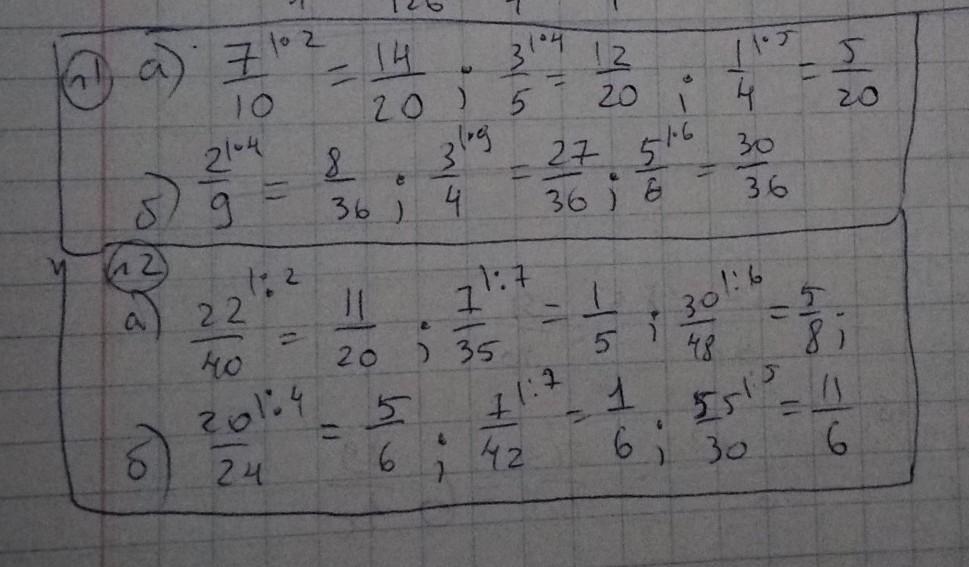 126
n1 а) 7/10 |·2 = 14/20 ; 3/5 |·4 = 12/20 ; 1/4 |·5 = 5/20
б) 2/9 |·4 = 8/36 ; 3/4 |·9 = 27/36 ; 5/6 |·6 = 30/36
n2
а) 22/40 |:2 = 11/20 ; 7/35 |:7 = 1/5 ; 30/48 |:6 = 5/8 ;
б) 20/24 |:4 = 5/6 ; 7/42 |:7 = 1/6 ; 55/30 |:5 = 11/6